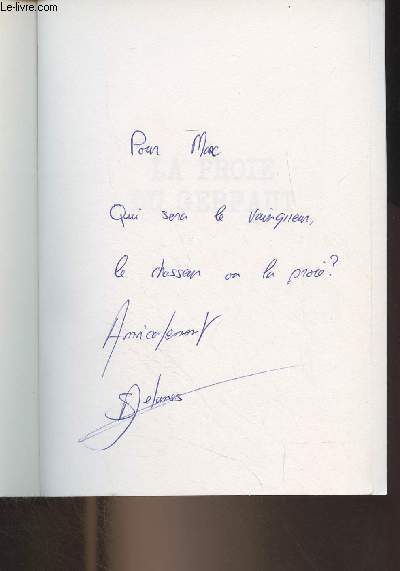 Le-livre.com
LA PROIE
DU GERFAUT
Pour Marc
Qui sera le vainqueur,
le chasseur ou la proie?
Amicalement